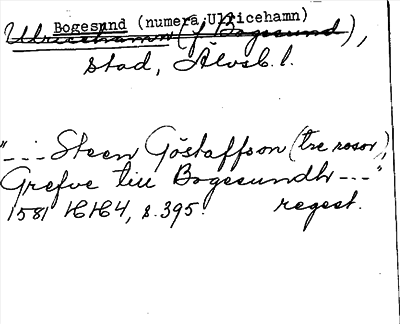 Bogesund (numera Ulricehamn)
Ulricehamn (f. Bogesund),
stad, Älvsb. l.
"--- Steen Göstaffson (tre rosor),
Grefve till Bogesundh ---"
1581 HH4, s. 395. regest.